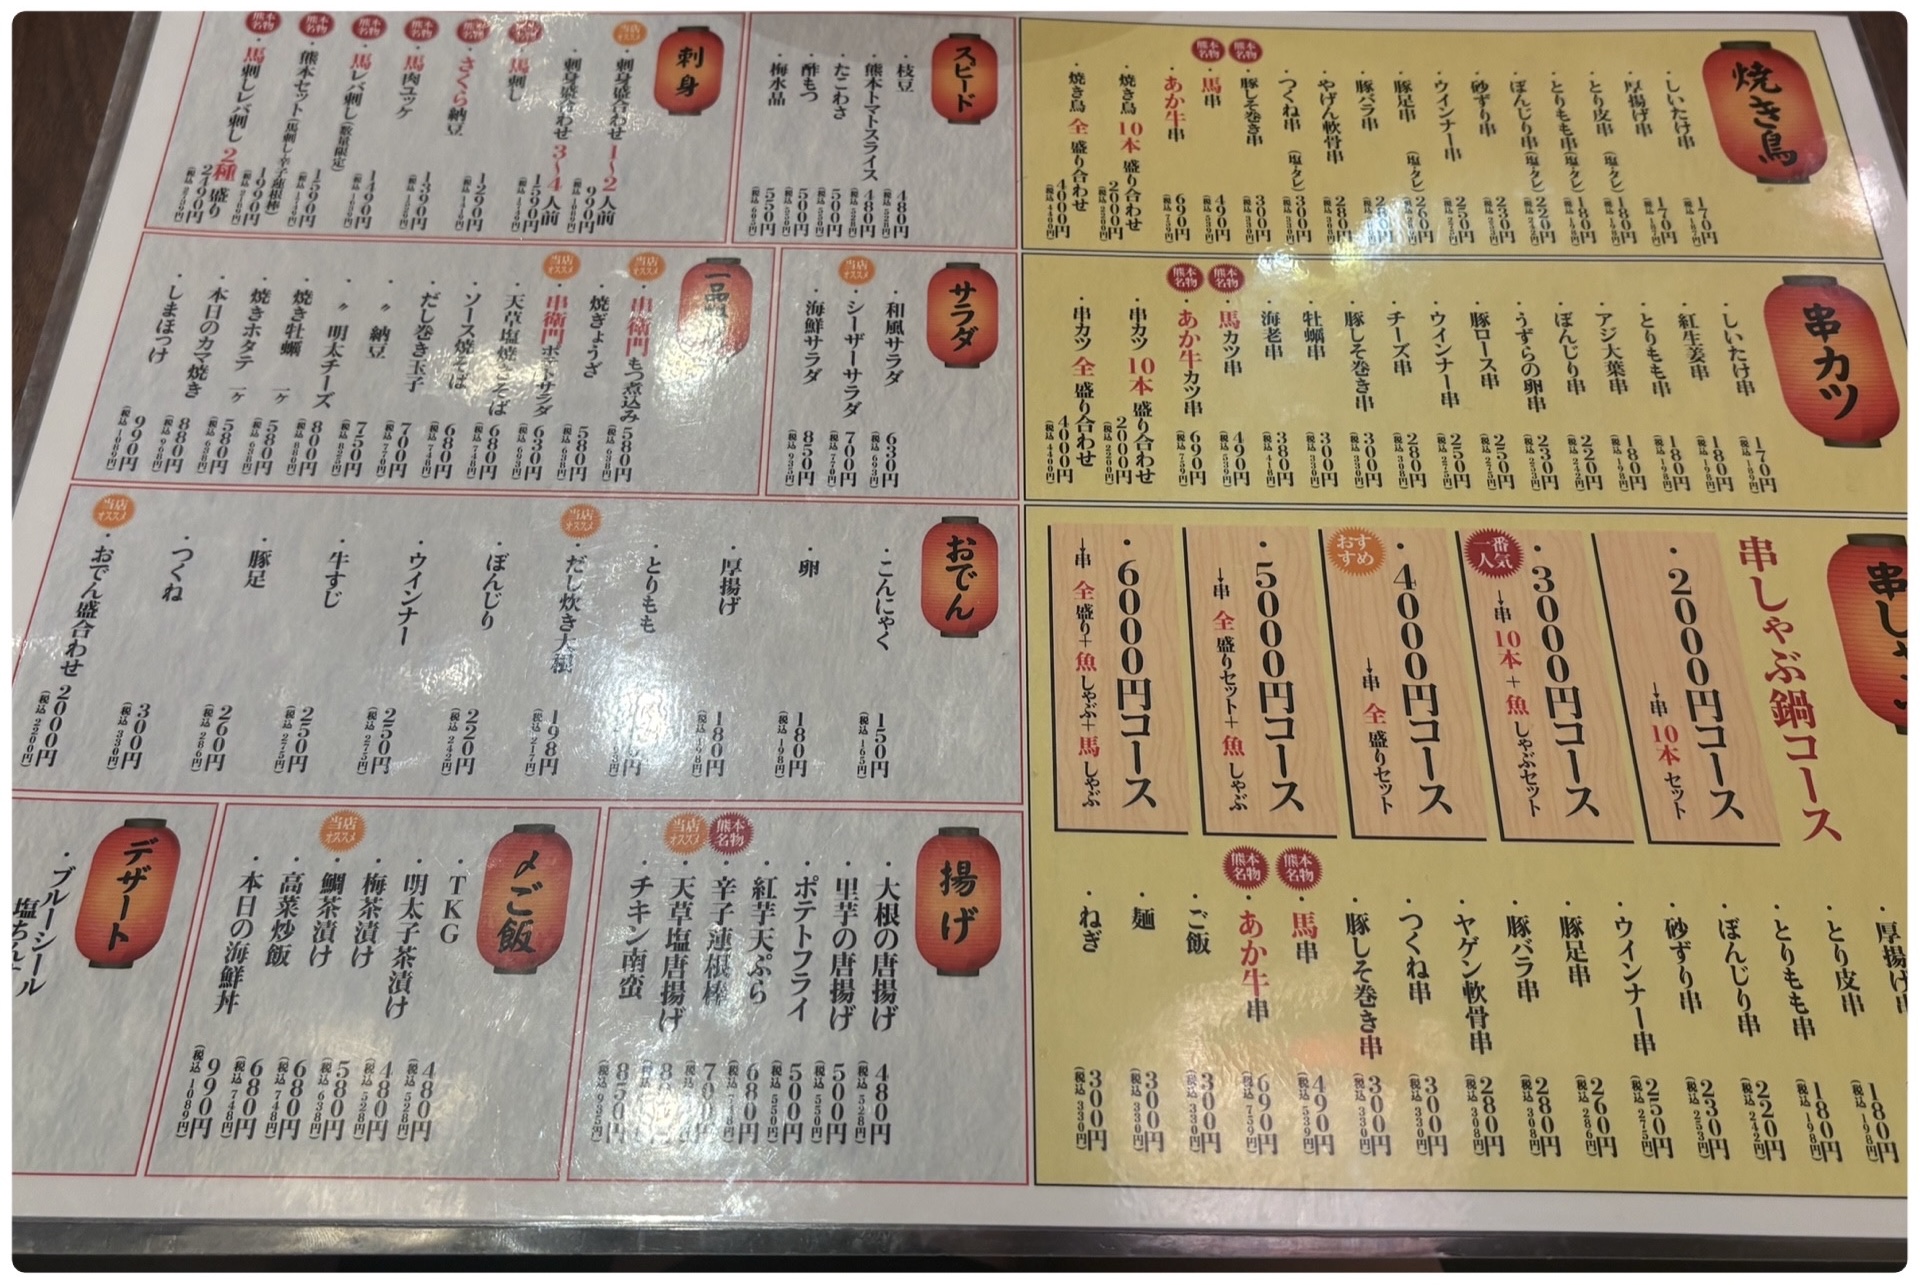 焼き鳥
・しいたけ串 170円 (税込 187円)
・厚揚げ串 170円 (税込 187円)
・とり皮串(塩・タレ) 180円 (税込 198円)
・とりもも串(塩・タレ) 180円 (税込 198円)
・ぼんじり串(塩・タレ) 220円 (税込 242円)
・砂ずり串 230円
・ウインナー串 250円
・豚足串(塩・タレ) 260円
・豚バラ串 280円
・やげん軟骨串 280円
・つくね串(塩・タレ) 300円
熊本名物
・豚しそ巻き串 300円 (税込 330円)
熊本名物
・馬串 490円 (税込 539円)
・あか牛串 690円 (税込 759円)
・焼き鳥 10本 盛り合わせ 2000円 (税込 2200円)
・焼き鳥 全 盛り合わせ 4000円 (税込 4400円)
串カツ
・しいたけ串 170円 (税込 187円)
・紅生姜串 180円 (税込 198円)
・とりもも串 180円 (税込 198円)
・アジ大葉串 180円 (税込 198円)
・ぼんじり串 220円 (税込 242円)
・うずらの卵串 230円 (税込 253円)
・豚ロース串 250円 (税込 275円)
・ウインナー串 250円 (税込 275円)
・チーズ串 280円 (税込 308円)
・豚しそ巻き串 300円 (税込 330円)
・牡蠣串 300円 (税込 330円)
・海老串 380円 (税込 418円)
熊本名物
・馬カツ串 490円 (税込 539円)
熊本名物
・あか牛カツ串 690円 (税込 759円)
・串カツ 10本 盛り合わせ 2000円 (税込 2200円)
・串カツ 全 盛り合わせ 4000円 (税込 4400円)
串しゃぶ鍋コース
・2000円コース
→串 10本 セット
一番人気
・3000円コース
→串 10本 + 魚 しゃぶセット
おすすめ
・4000円コース
→串 全 盛りセット
・5000円コース
→串 全 盛りセット+ 魚 しゃぶ
・6000円コース
→串 全 盛り+ 魚 しゃぶ+ 馬 しゃぶ
厚揚げ串 180円 (税込 198円)
・とり皮串 180円 (税込 198円)
・とりもも串 220円 (税込 242円)
・ぼんじり串 230円 (税込 253円)
・砂ずり串 250円 (税込 275円)
・ウインナー串 260円 (税込 286円)
・豚足串 280円 (税込 308円)
・豚バラ串 280円 (税込 308円)
・ヤゲン軟骨串 300円 (税込 330円)
・つくね串 300円 (税込 330円)
・豚しそ巻き串 490円 (税込 539円)
熊本名物
・馬串 690円 (税込 759円)
熊本名物
・あか牛串
・ご飯 300円 (税込 330円)
・麺 300円 (税込 330円)
・ねぎ 300円 (税込 330円)
スピード
・枝豆 480円 (税込 528円)
・熊本トマトスライス 480円 (税込 528円)
・たこわさ 500円 (税込 550円)
・酢もつ 500円 (税込 550円)
・梅水晶 550円 (税込 605円)
刺身
当店オススメ
・刺身盛合わせ 1〜2人前 990円 (税込 1089円)
・刺身盛合わせ 3〜4人前 1590円 (税込 1749円)
熊本名物
・馬刺し
熊本名物
・さくら納豆 1290円
熊本名物
・馬肉ユッケ 1390円
熊本名物
・馬レバ刺し(数量限定) 1490円
熊本名物
・熊本セット(馬刺し・辛子蓮根棒) 1590円
熊本名物
・馬刺しレバ刺し 2種盛り 2490円
1990円
サラダ
・和風サラダ 630円 (税込 693円)
当店オススメ
・シーザーサラダ 700円 (税込 770円)
・海鮮サラダ 850円 (税込 935円)
一品
当店オススメ
・串衛門もつ煮込み 580円 (税込 638円)
・焼ぎょうざ 580円 (税込 638円)
当店オススメ
・串衛門ポテトサラダ 630円 (税込 693円)
・天草塩焼きそば 680円 (税込 748円)
・ソース焼そば 680円 (税込 748円)
・だし巻き玉子 700円 (税込 770円)
・〃 納豆 750円 (税込 825円)
・〃 明太チーズ 800円 (税込 880円)
・焼き牡蠣 一ヶ 580円 (税込 638円)
・焼きホタテ 一ヶ 580円 (税込 638円)
・本日のカマ焼き 880円 (税込 968円)
・しまほっけ 990円 (税込 1089円)
おでん
・こんにゃく 150円 (税込 165円)
・卵 180円 (税込 198円)
・厚揚げ 180円 (税込 198円)
・とりもも
当店オススメ
・だし炊き大根 198円 (税込 217円)
・ぼんじり 220円 (税込 242円)
・ウインナー 250円 (税込 275円)
・牛すじ 250円 (税込 275円)
・豚足 260円 (税込 286円)
・つくね 300円 (税込 330円)
当店オススメ
・おでん盛合わせ 2000円 (税込 2200円)
揚げ
・大根の唐揚げ 480円 (税込 528円)
・里芋の唐揚げ 500円 (税込 550円)
・ポテトフライ 500円 (税込 550円)
・紅芋天ぷら 680円 (税込 748円)
熊本名物
・辛子蓮根棒 700円
当店オススメ
・天草塩唐揚げ
・チキン南蛮 850円 (税込 935円)
〆ご飯
・TKG
・明太子茶漬け 480円 (税込 528円)
・梅茶漬け 480円 (税込 528円)
当店オススメ
・鯛茶漬け 580円 (税込 638円)
・高菜炒飯 680円 (税込 748円)
680円 (税込 748円)
・本日の海鮮丼 990円 (税込 1089円)
デザート
・ブルーシール